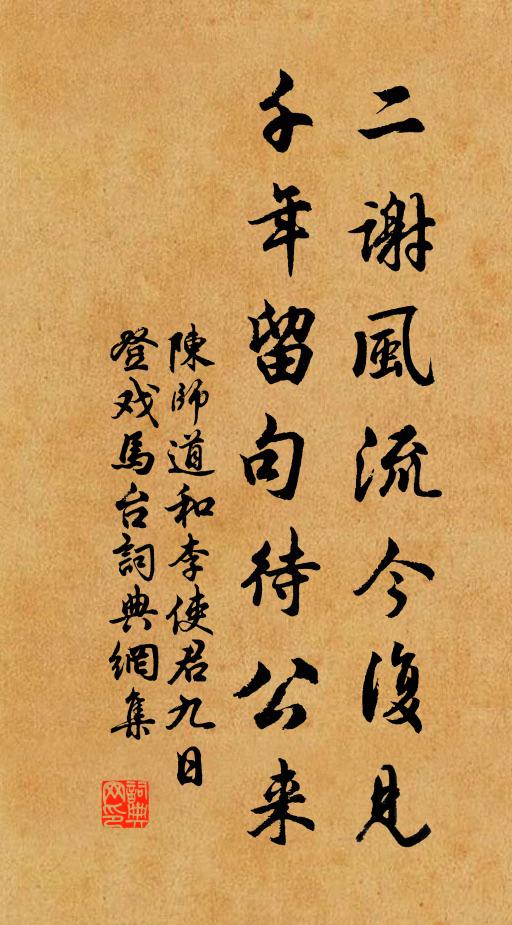 二謝風流今復見
千年留句待公来
陳師道和李使君九日
登戏馬台詞典網集
詞典
网印